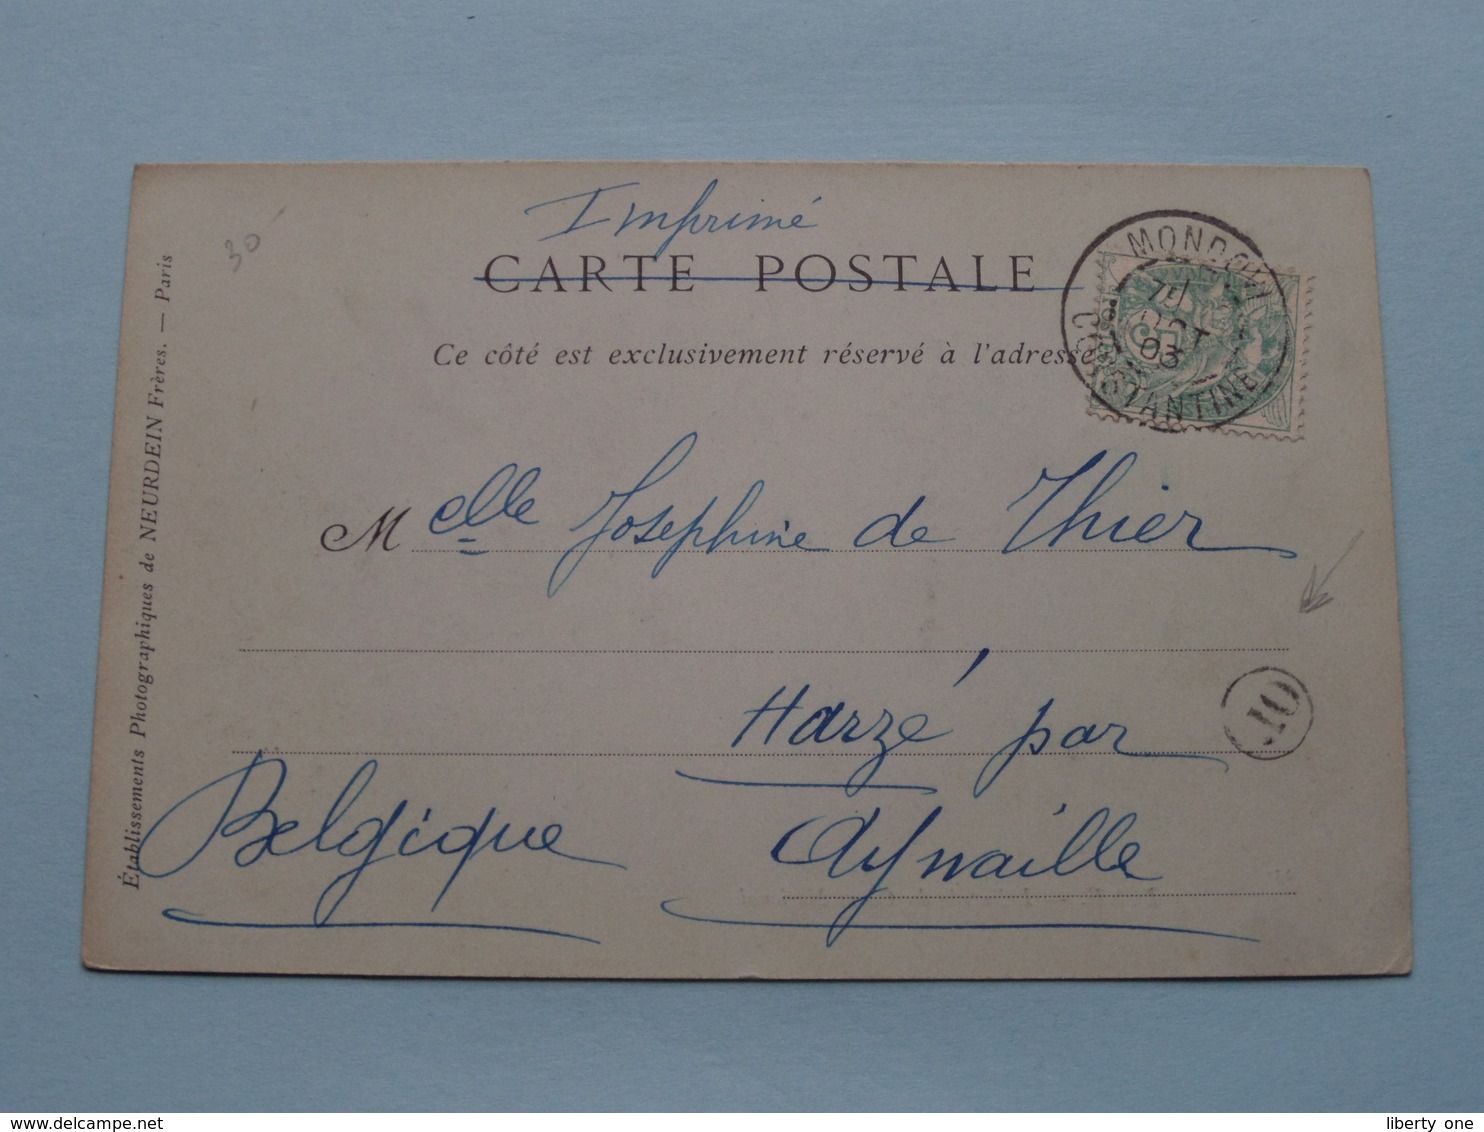 Imprimé
CARTE POSTALE
Ce côté est exclusivement réservé à l'adresse
MONDOVI
OCT
03
CONSTANTINE
30
Melle Josephine de Thier
Harzé par
Aynaille
Belgique
Établissements Photographiques de NEURDEIN Frères. — Paris
liberty one